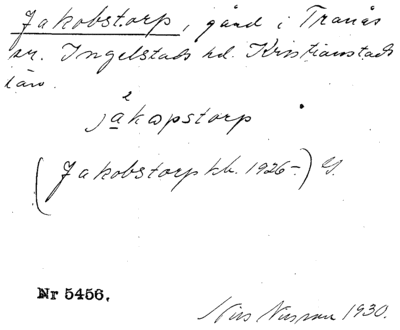 Jakobstorp, gård i Tranås
sn. Ingelstads hd. Kristianstads
län.
jakåpstorp
(Jakobstorp kb. 1926-) G.
Nr 5456.
Nils 1930.